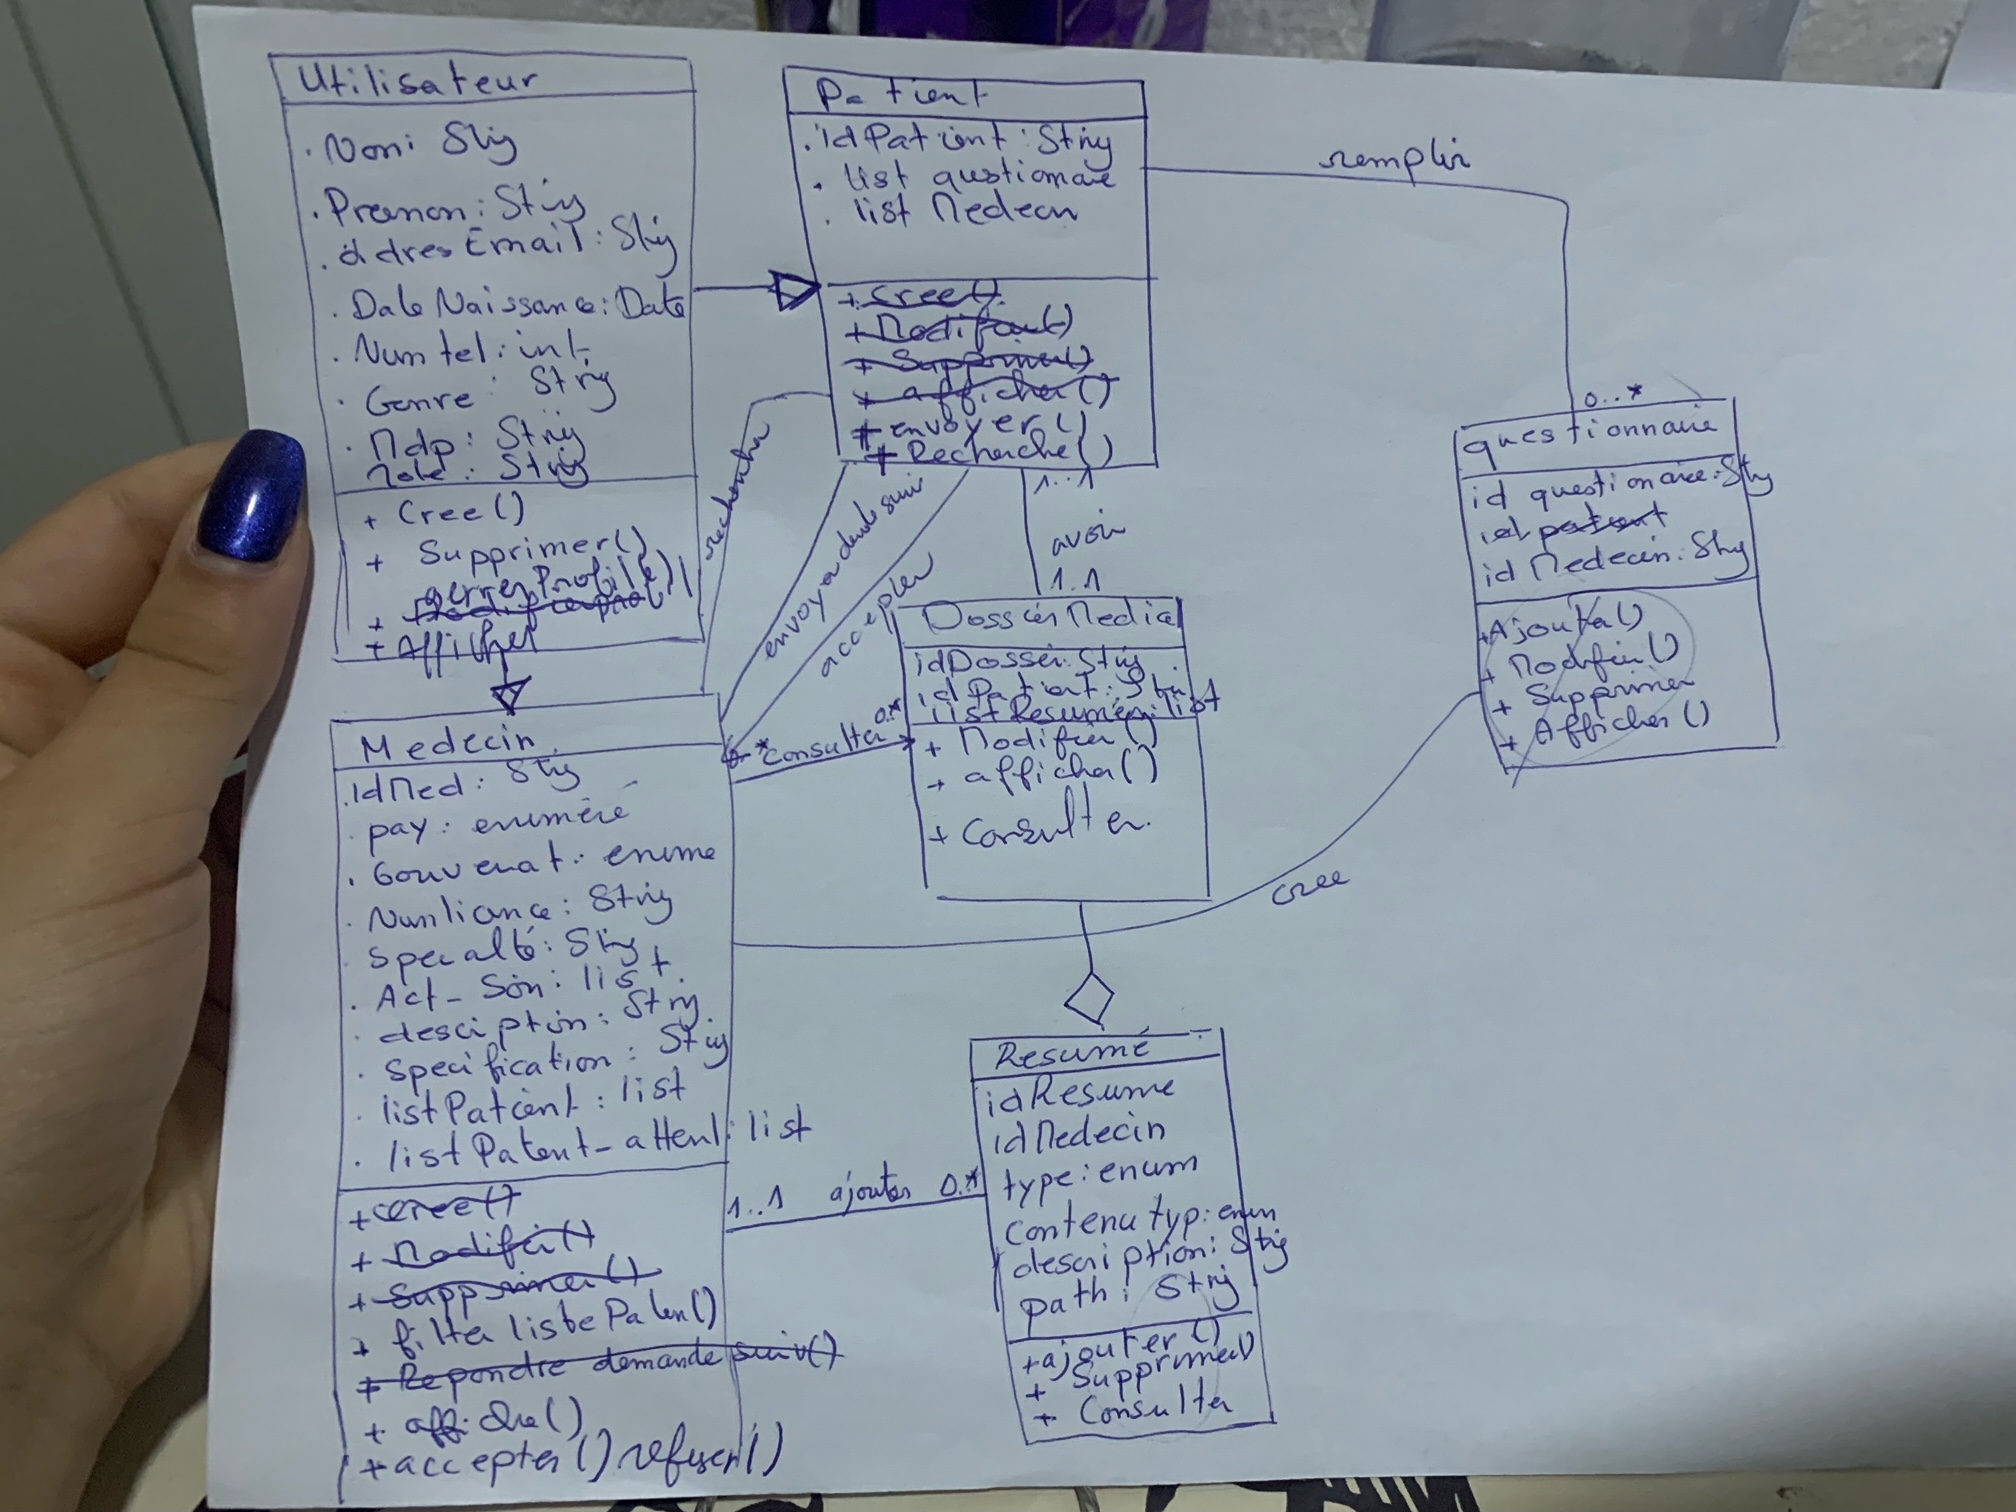 Utilisateur
. Nom: Strig
. Prenom: Strig
. adres Email: Strig
. Date Naissance: Date
. Num tel: int
. Genre: Strig
. Mdp: Strig
Role: Strig
+ Cree()
+ Supprimer()
gerrer Profile()
+
+ Afficher
Patient
. idPatient: Strig
. list questionaire
. list Medecin
+ Cree()
+ Modifier()
+ Supprimer()
+ afficher()
+ envoyer()
+ Recherche()
remplir
0..*
questionnaire
id questionaire: Strig
id patient
id Medecin: Strig
+ Ajouter()
+ Modifier()
+ Supprimer
+ Afficher()
rechercher
envoyer
accepter
1..1
avoir
1..1
Dossier Medical
idDossier: Strig
idPatient: Stri
listResumé: list
+ Modifier()
+ afficher()
+ Consulter
* consulter 0.*
cree
Medecin
. idMed: Strig
. pay: enuméré
. Gouvenat: enume
. Numliance: Strig
. Specalté: Strig
. Act_Soin: list
. desciption: Strig
. Specification: Strig
. listPatient: list
. listPatent_attent: list
+ cree()
+ Modifier()
+ Supprimer()
+ filter liste Paten()
+ Repondre demande suiv()
+ affiche()
+ accepter() refuser()
1..1 ajouter 0.*
Resumé
idResume
idMedecin
type: enum
Contenu typ: enum
description: Strig
path: Strig
+ ajouter()
+ Supprimer()
+ Consulter